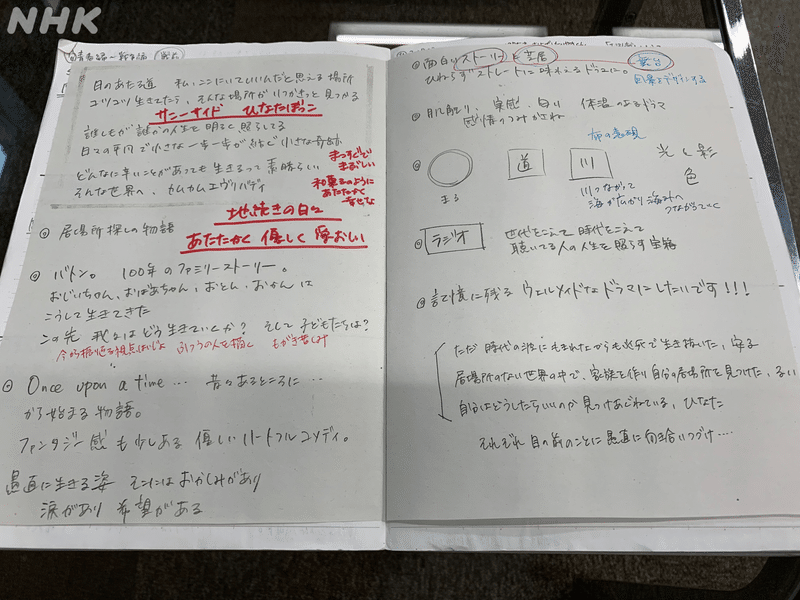 NHK
日のあたる道 私、ここにいていいんだと思える場所
コツコツ生きてたら、そんな場所がいつかきっと見つかる
サニーサイド ひなたぼっこ
誰しもが誰かの人生を明るく照らしてる
日々の平凡で小さな一歩一歩が紡ぐ小さな奇跡
どんなに辛いことがあっても生きるって素晴らしい
そんな世界へ、カムカムエヴリバディ
まっすぐで
まぶしい
和菓子のように
あたたかく
幸せな
地続きの日々
◎ 居場所探しの物語
あたたかく 優しく 愛おしい
◎ バトン。 100年のファミリーストーリー。
おじいちゃん、おばあちゃん、おとん、おかん は
こうして生きてきた
この先 我々はどう生きていくか? そして子どもたちは?
ふつうの人を描く もがき苦しみ
◎ Once upon a time… 昔々あるところに…
から始まる物語。
ファンタジー感も少しある 優しいハートフルコメディ。
愚直に生きる姿 そこにはおかしみがあり
涙があり 希望がある
◎ 面白いストーリーと芝居
舞台
ひねらずストレートに味わえるドラマに。
◎ 肌触り、実感、匂い 体温のあるドラマ
◎
まる
道
川
川つながって
海が広がり 海外へ
つながっていく
光と彩
色
◎ ラジオ
世代をこえて 時代をこえて
聴いてる人の人生を照らす宝箱
◎ 記憶に残る ウェルメイドなドラマにしたいです!!!
ただ 時代の波にもまれながらも必死で生き抜いた、安子
居場所のない世界の中で、家族を作り自分の居場所を見つけた、るい
自分はどうしたらいいのか見つけあぐねている、ひなた
それぞれ目の前のことに愚直に向き合いつづけ….